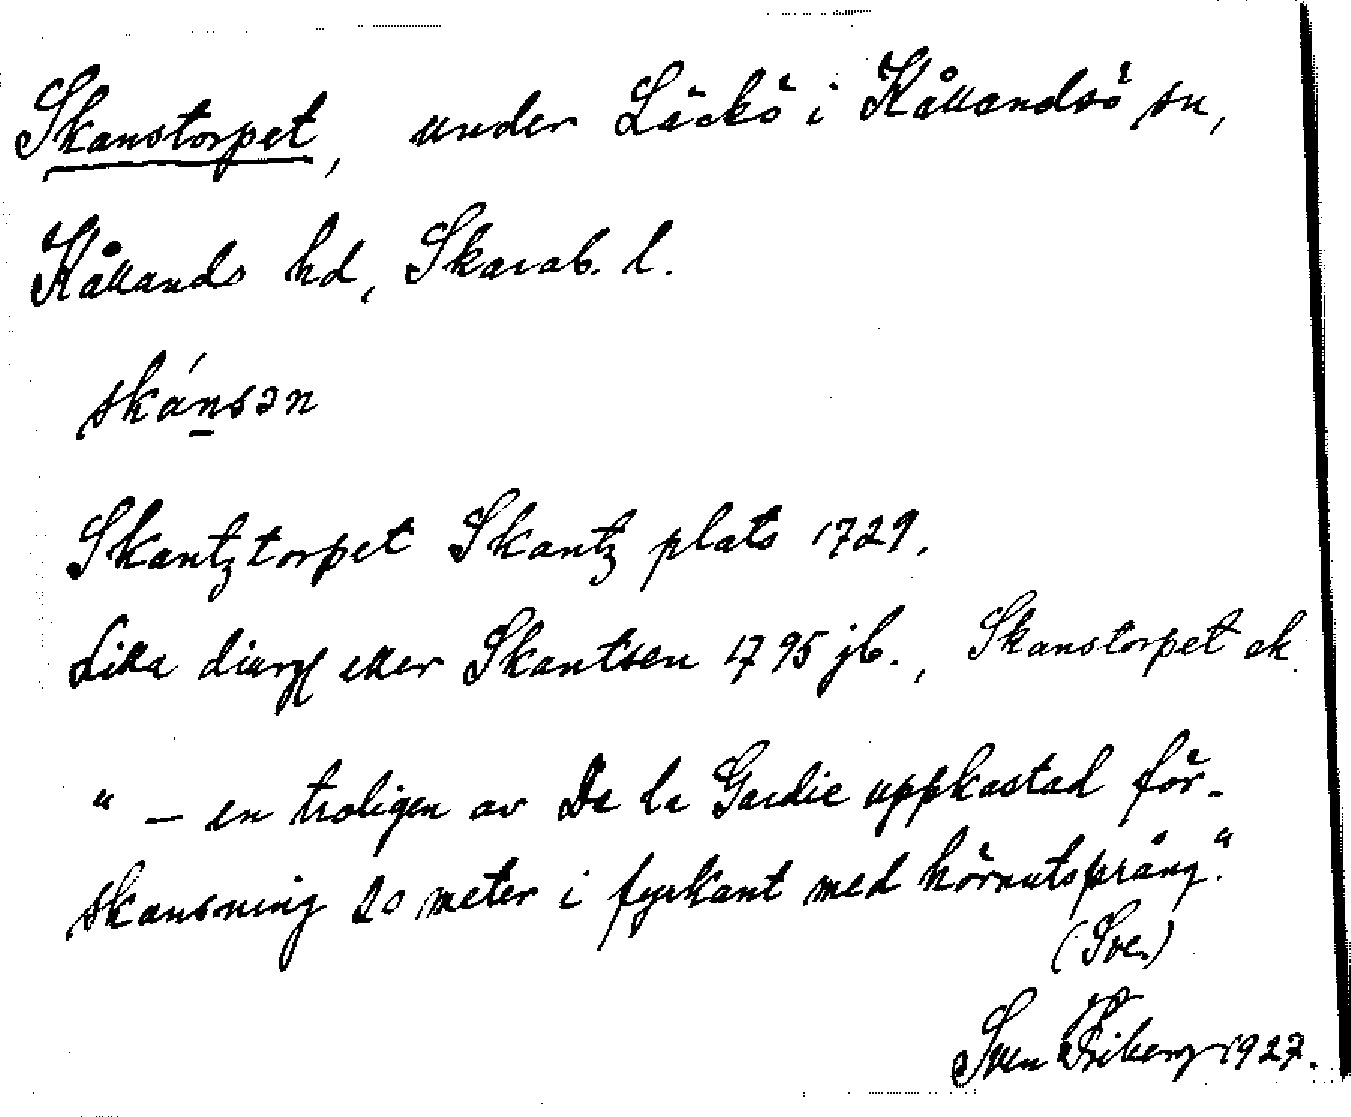 Skanstorpet, under Läckö i Kållandsö sn,
Kållands hd, Skarab. l.
skánsən
Skantztorpet Skantz plats 1729.
Lilla eller Skantsen 1795 jb., Skanstorpet ek.
" — en troligen av De la Gardie uppkastad för-
skansning 20 meter i fyrkant med hörnutsprång."
(Sve.)
Sven Friberg 1927.